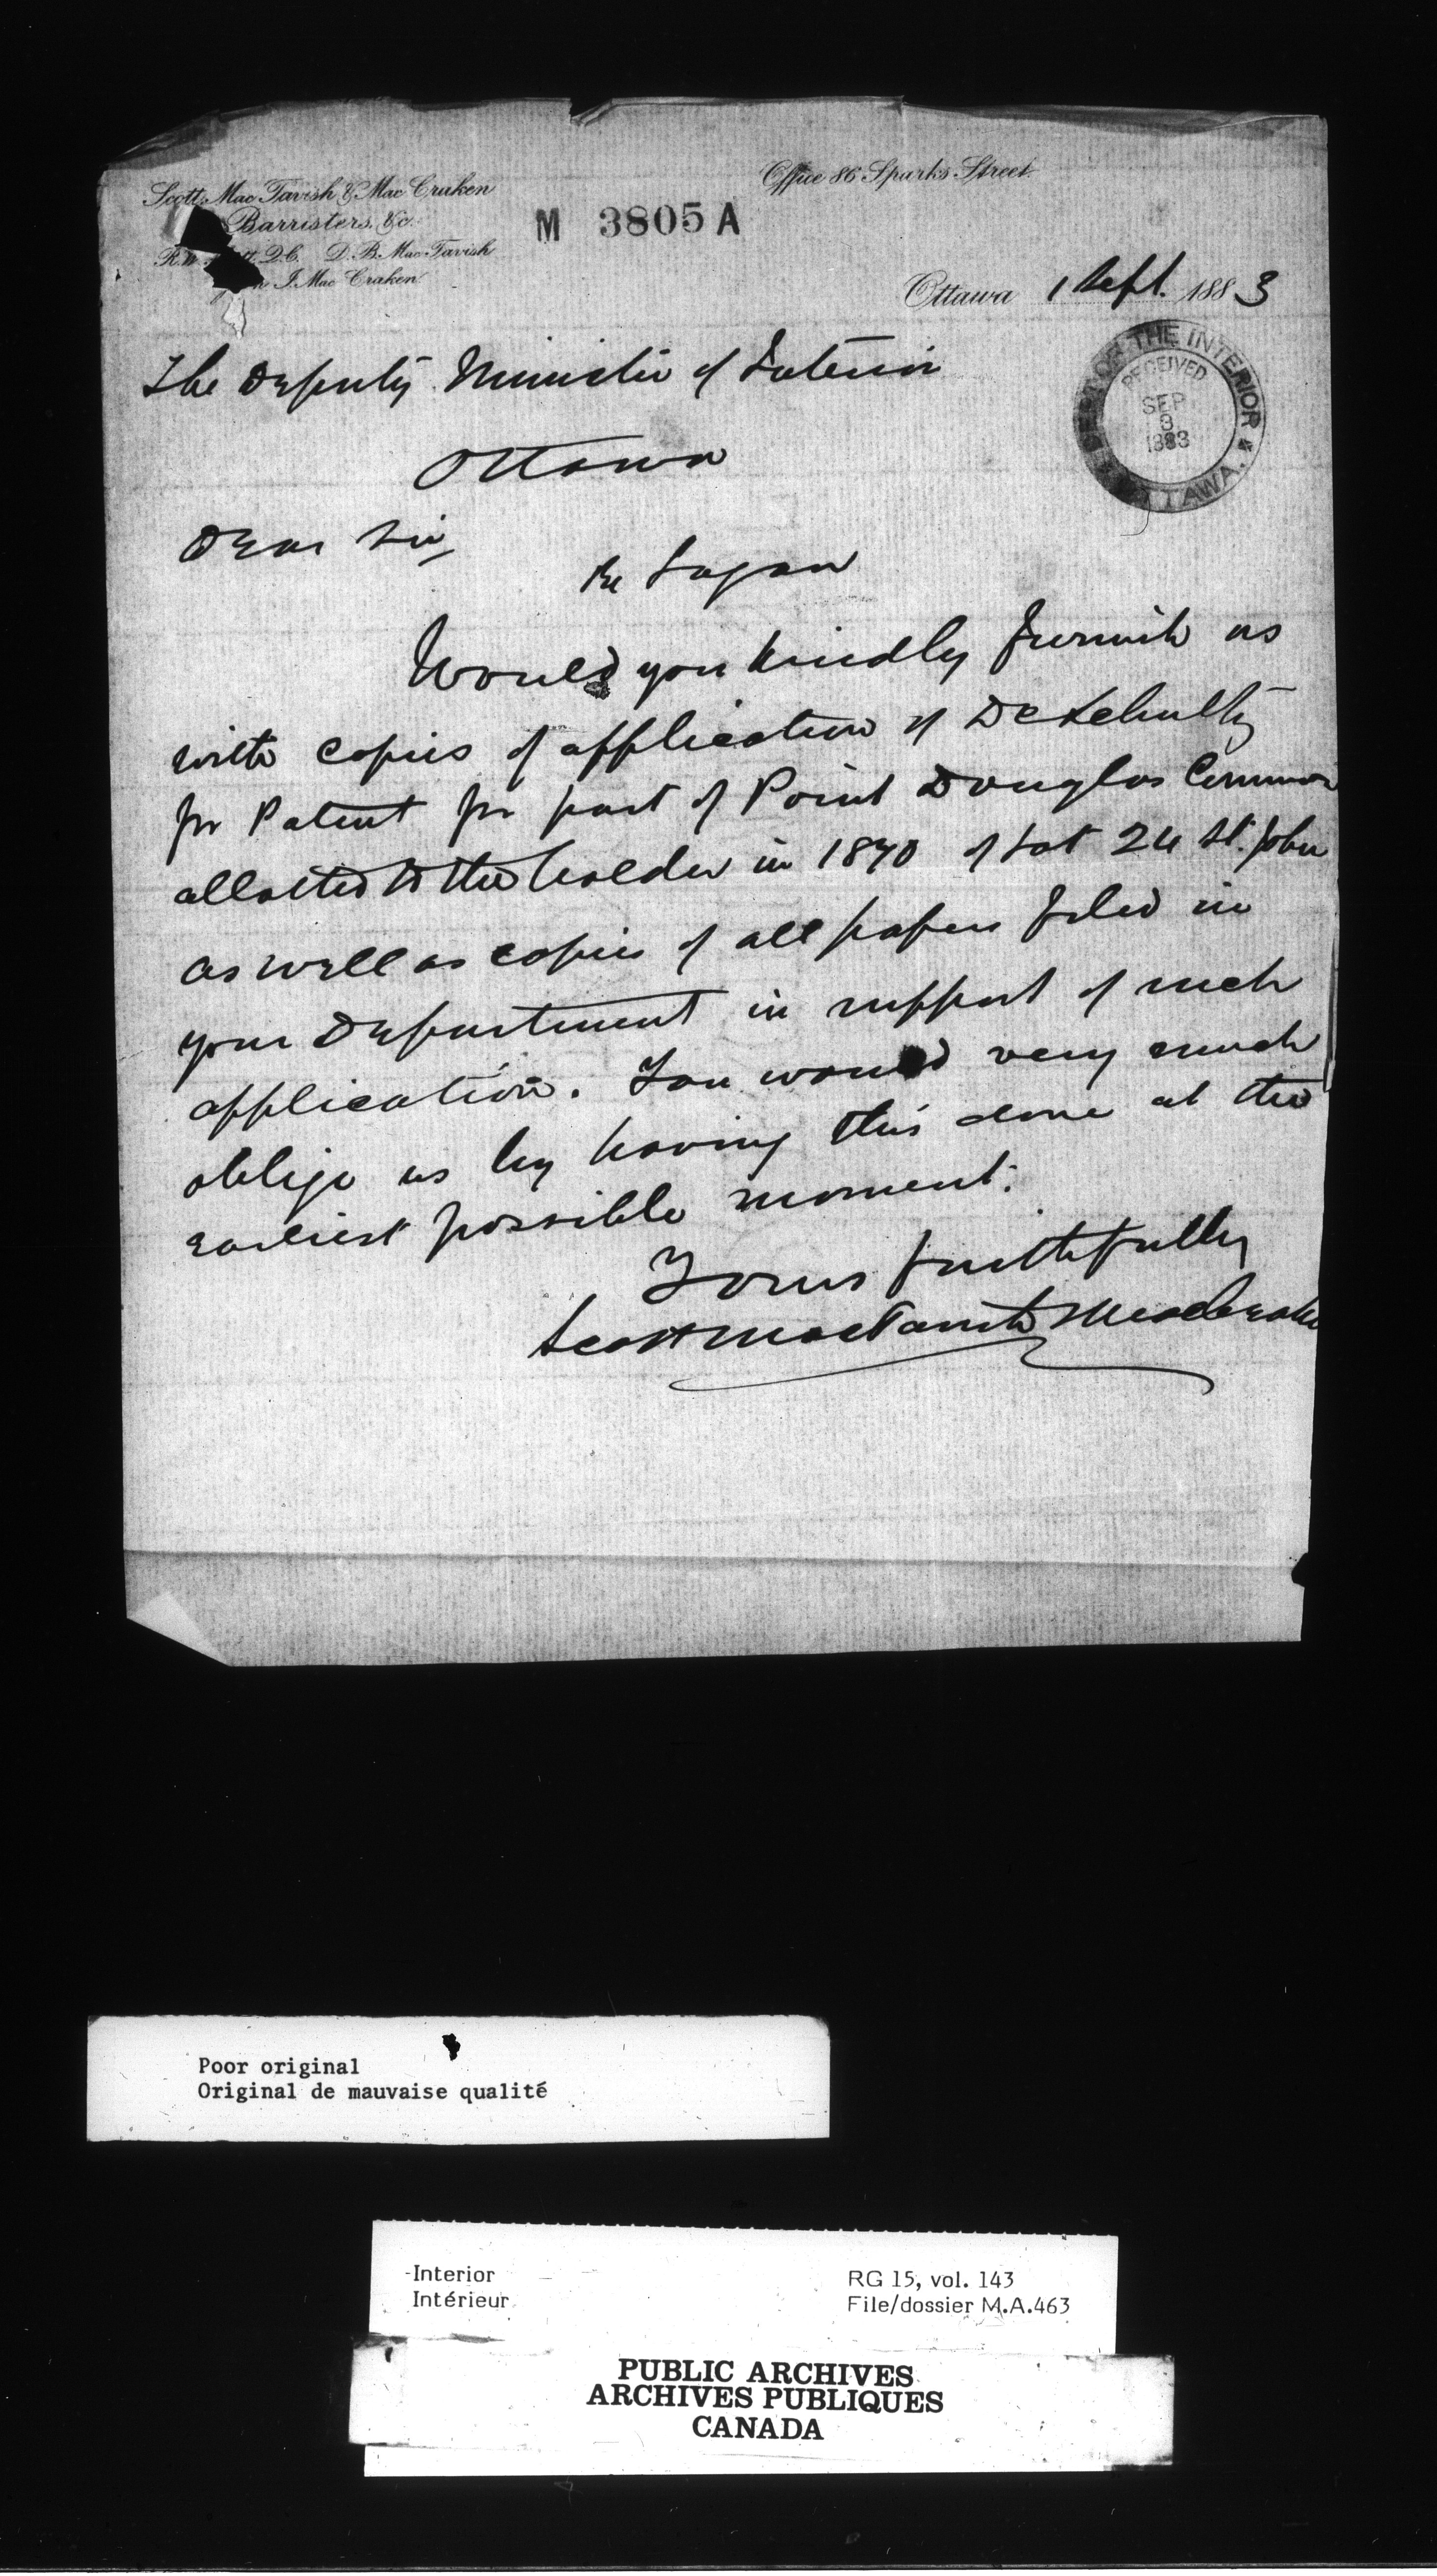 Scott, Mac Tavish & Mac Craken
Barristers, &c.
R.W. Q.C. D. B. Mac Tavish
J. Mac Craken
Office 86 Sparks Street.
M 3805 A
Ottawa 1 Sept. 1883
DEPT OF THE INTERIOR
RECEIVED
SEP
3
1883
OTTAWA.
The Deputy Minister of Interior
Ottawa
Dear Sir,
Re Logan
Would you kindly furnish us
with copies of application of Dr Schultz
for Patent for part of Point Douglas Common
allotted to the holder in 1870 of Lot 24 St. John
as well as copies of all papers filed in
your Department in support of such
application. You would very much
oblige us by having this done at the
earliest possible moment.
Yours faithfully
Scott MacTavish MacCraken
Poor original
Original de mauvaise qualité
Interior
Intérieur
RG 15, vol. 143
File/dossier M.A.463
PUBLIC ARCHIVES
ARCHIVES PUBLIQUES
CANADA